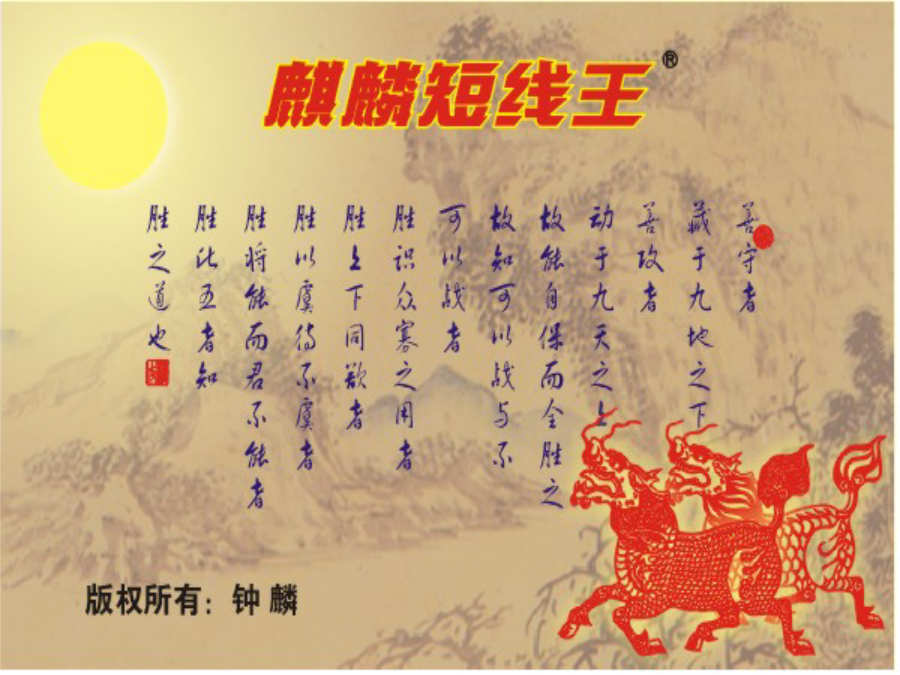 麒麟短线王®
善守者
藏于九地之下
善攻者
动于九天之上
故能自保而全胜之
故知可以战与不
可以战者
胜识众寡之用者
胜上下同欲者
胜以虞待不虞者
胜将能而君不能者
胜此五者知
胜之道也
版权所有：钟 麟